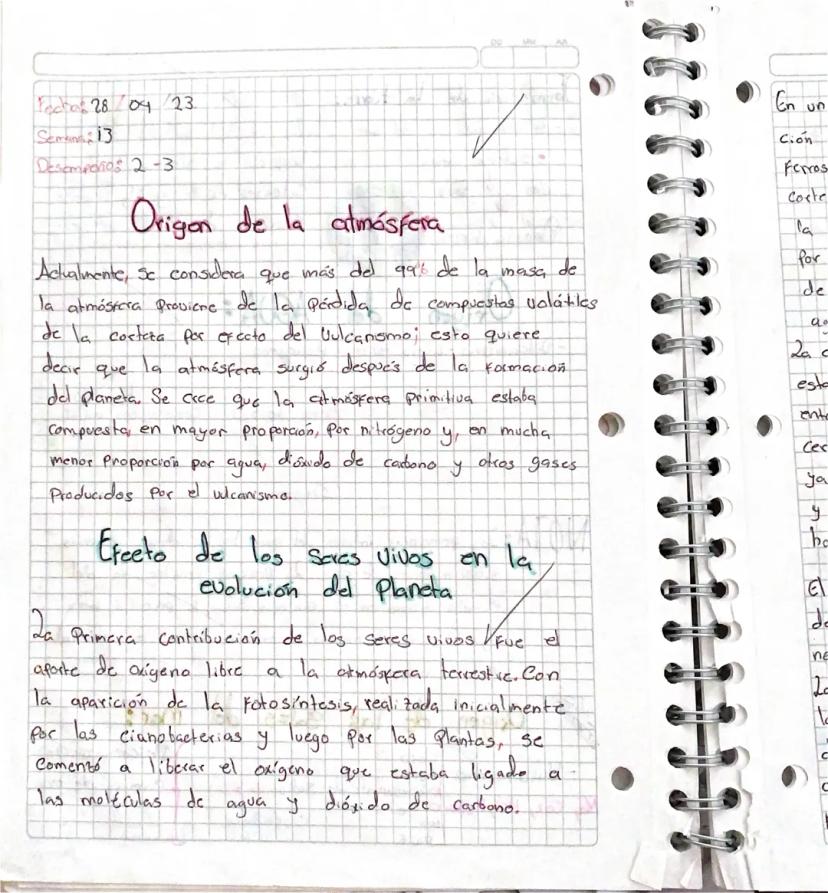 DD MM AA
Fecha: 28 / 04 / 23
Semana: 13
Desempeños: 2 - 3
Origen de la atmósfera
Actualmente, se considera que más del 99% de la masa de
la atmósfera proviene de la pérdida de compuestos volátiles
de la corteza por efecto del vulcanismo; esto quiere
decir que la atmósfera surgió después de la formación
del planeta. Se cree que la atmósfera primitiva estaba
compuesta, en mayor proporción, por nitrógeno y, en mucha
menor proporción por agua, dióxido de carbono y otros gases
producidos por el vulcanismo.
Efecto de los seres vivos en la
evolución del planeta
La primera contribución de los seres vivos fue el
aporte de oxígeno libre a la atmósfera terrestre. Con
la aparición de la fotosíntesis, realizada inicialmente
por las cianobacterias y luego por las plantas, se
comentó a liberar el oxígeno que estaba ligado a
las moléculas de agua y dióxido de carbono.
En un
ción
Ferros
corte
la
por
de
La
esta
ya
y
El
de